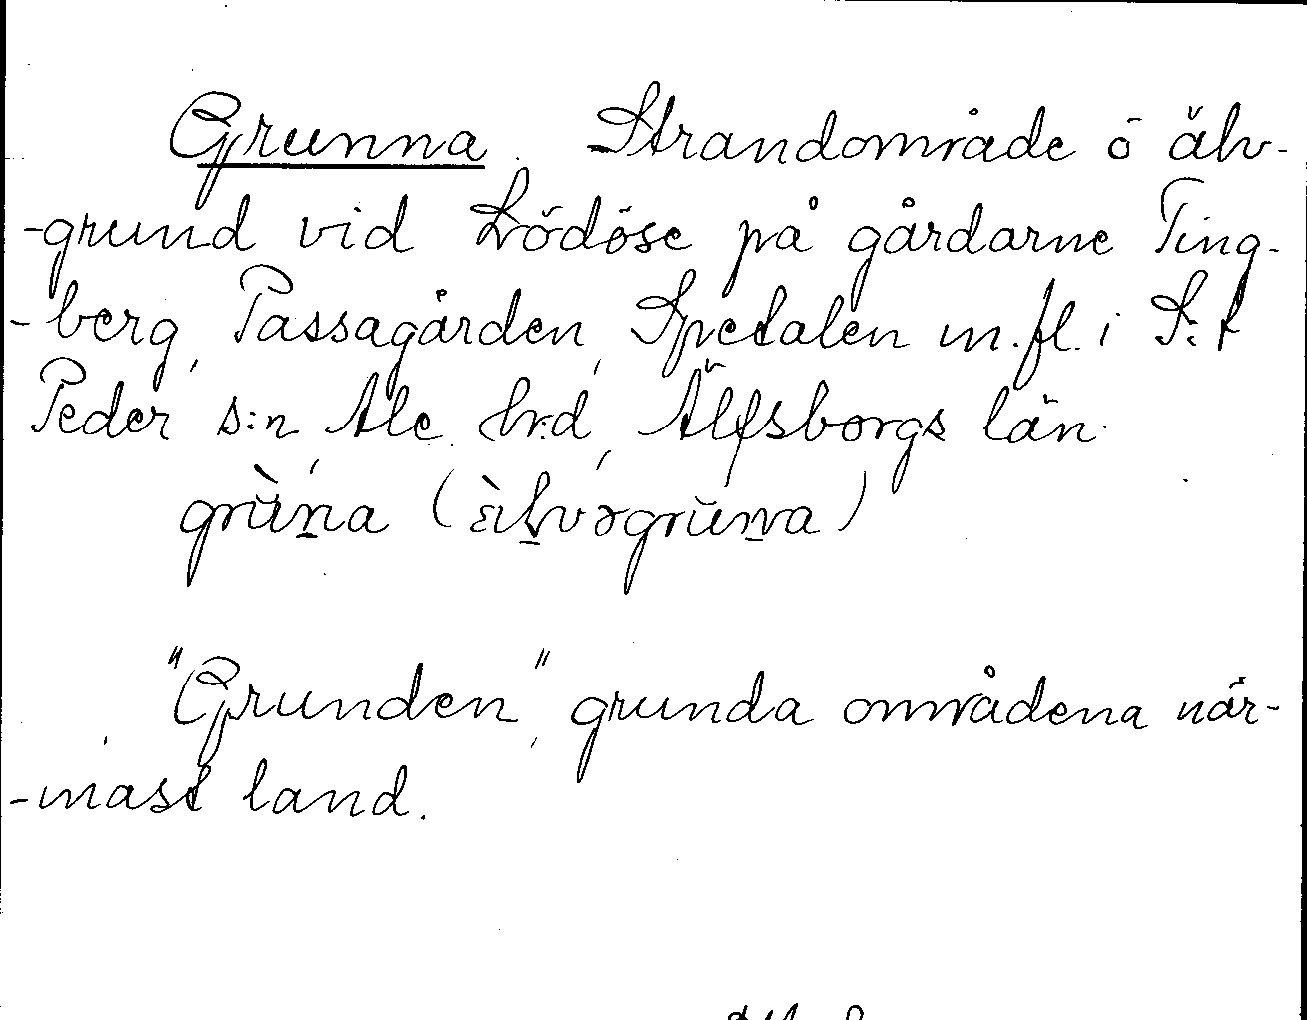 Grunna. Strandområde ö älv-
-grund vid Lödöse på gårdarne Ting-
-berg, Passagården, Spetalen m.fl. i S:t
Peder s:n, Ale hrd, Älfsborgs län.
grùna (
"Grunden", grunda områdena när-
-mast land.